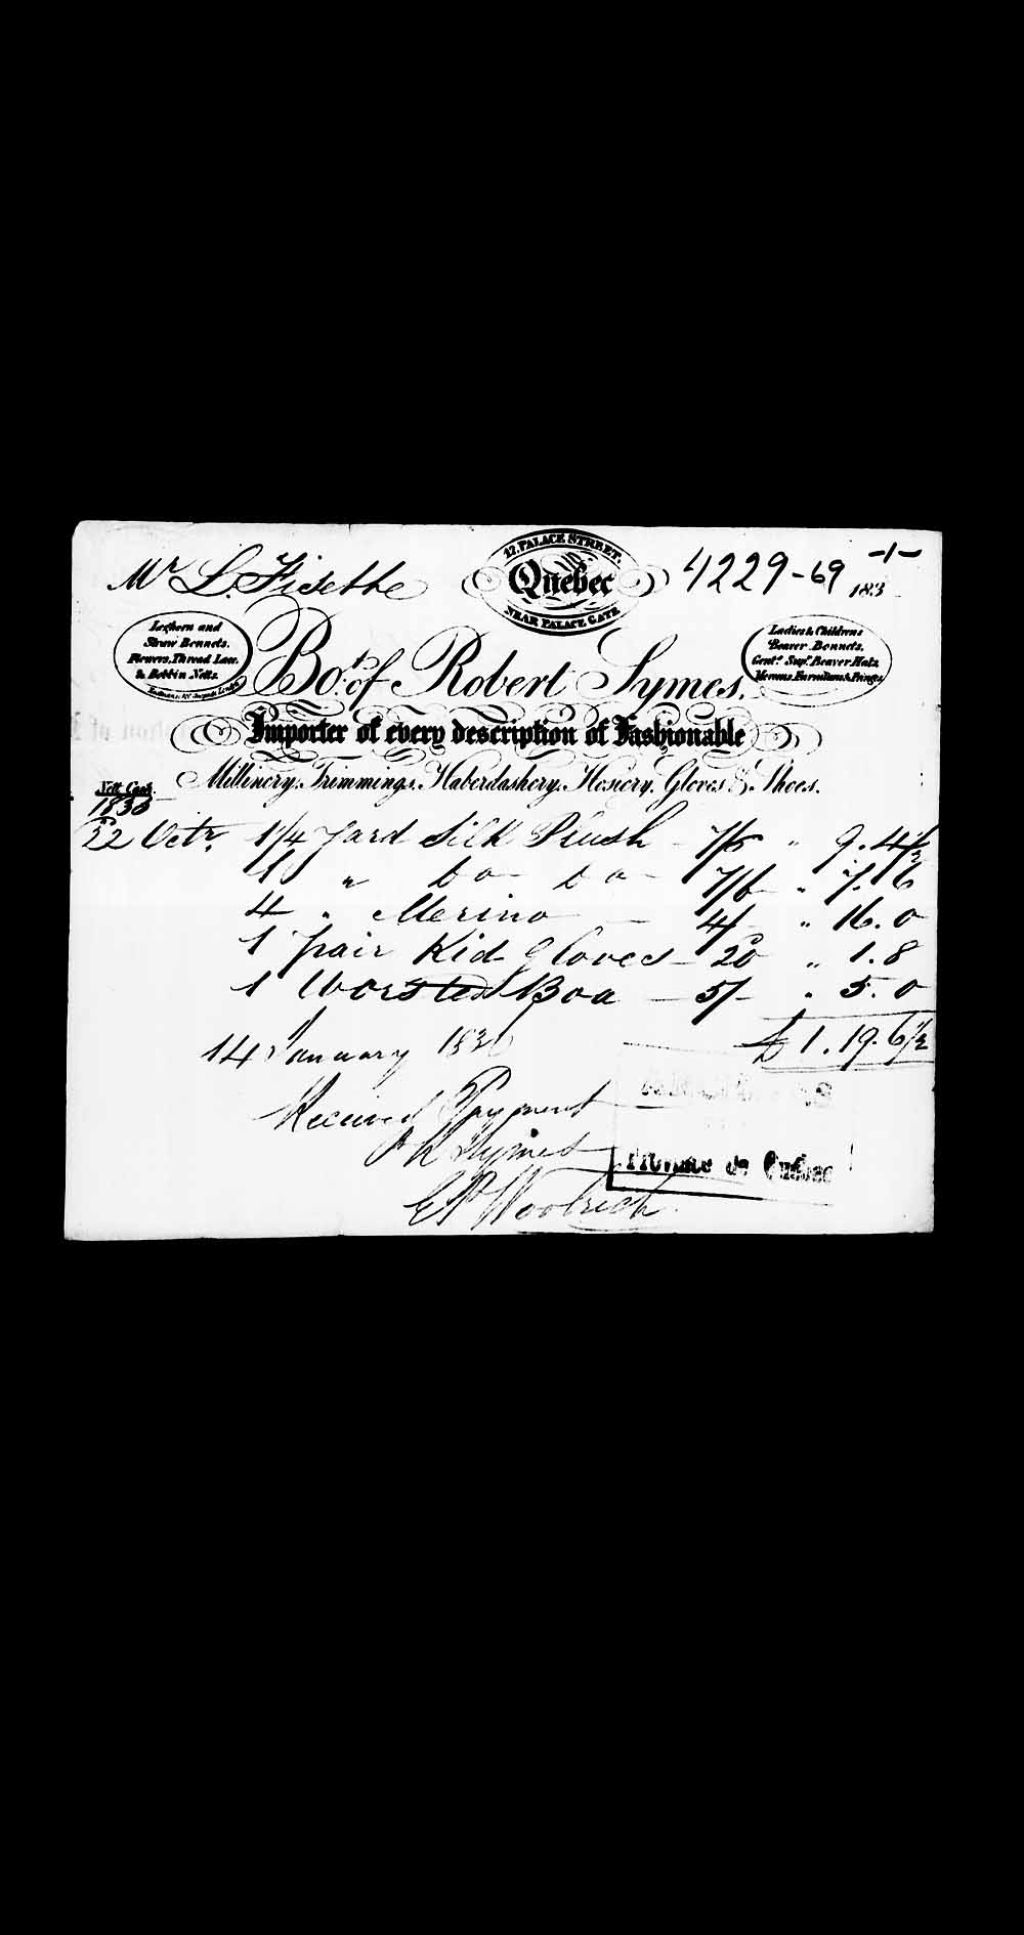 12, PALACE STREET.
Mr L. Fisette Quebec 4229-69 -1-
183
NEAR PALACE GATE
Leghorn and
Straw Bonnets.
Flowers, Thread Lace,
& Bobbin Netts.
Ladies & Childrens
Beaver Bonnets,
Gent.s Sup.r Beaver Hats
Bo.t of Robert Symes.
Importer of every description of Fashionable
Millinery, Trimmings, Haberdashery, Hosiery, Gloves & Shoes.
Nett Cash.
1835
22 Octr. 1 1/4 Yard Silk Plush - 7/6 " 9. 4 1/2
1 " Do Do - 7/6 " 7. 6
4 " Merino - 4/- " 16. 0
1 pair Kid Gloves - 20 " 1. 8
1 Worsted Boa - 5/- " 5. 0
£ 1. 19. 6 1/2
14 January 1836
Received Payment
R Symes
Woolrich
Province de Québec